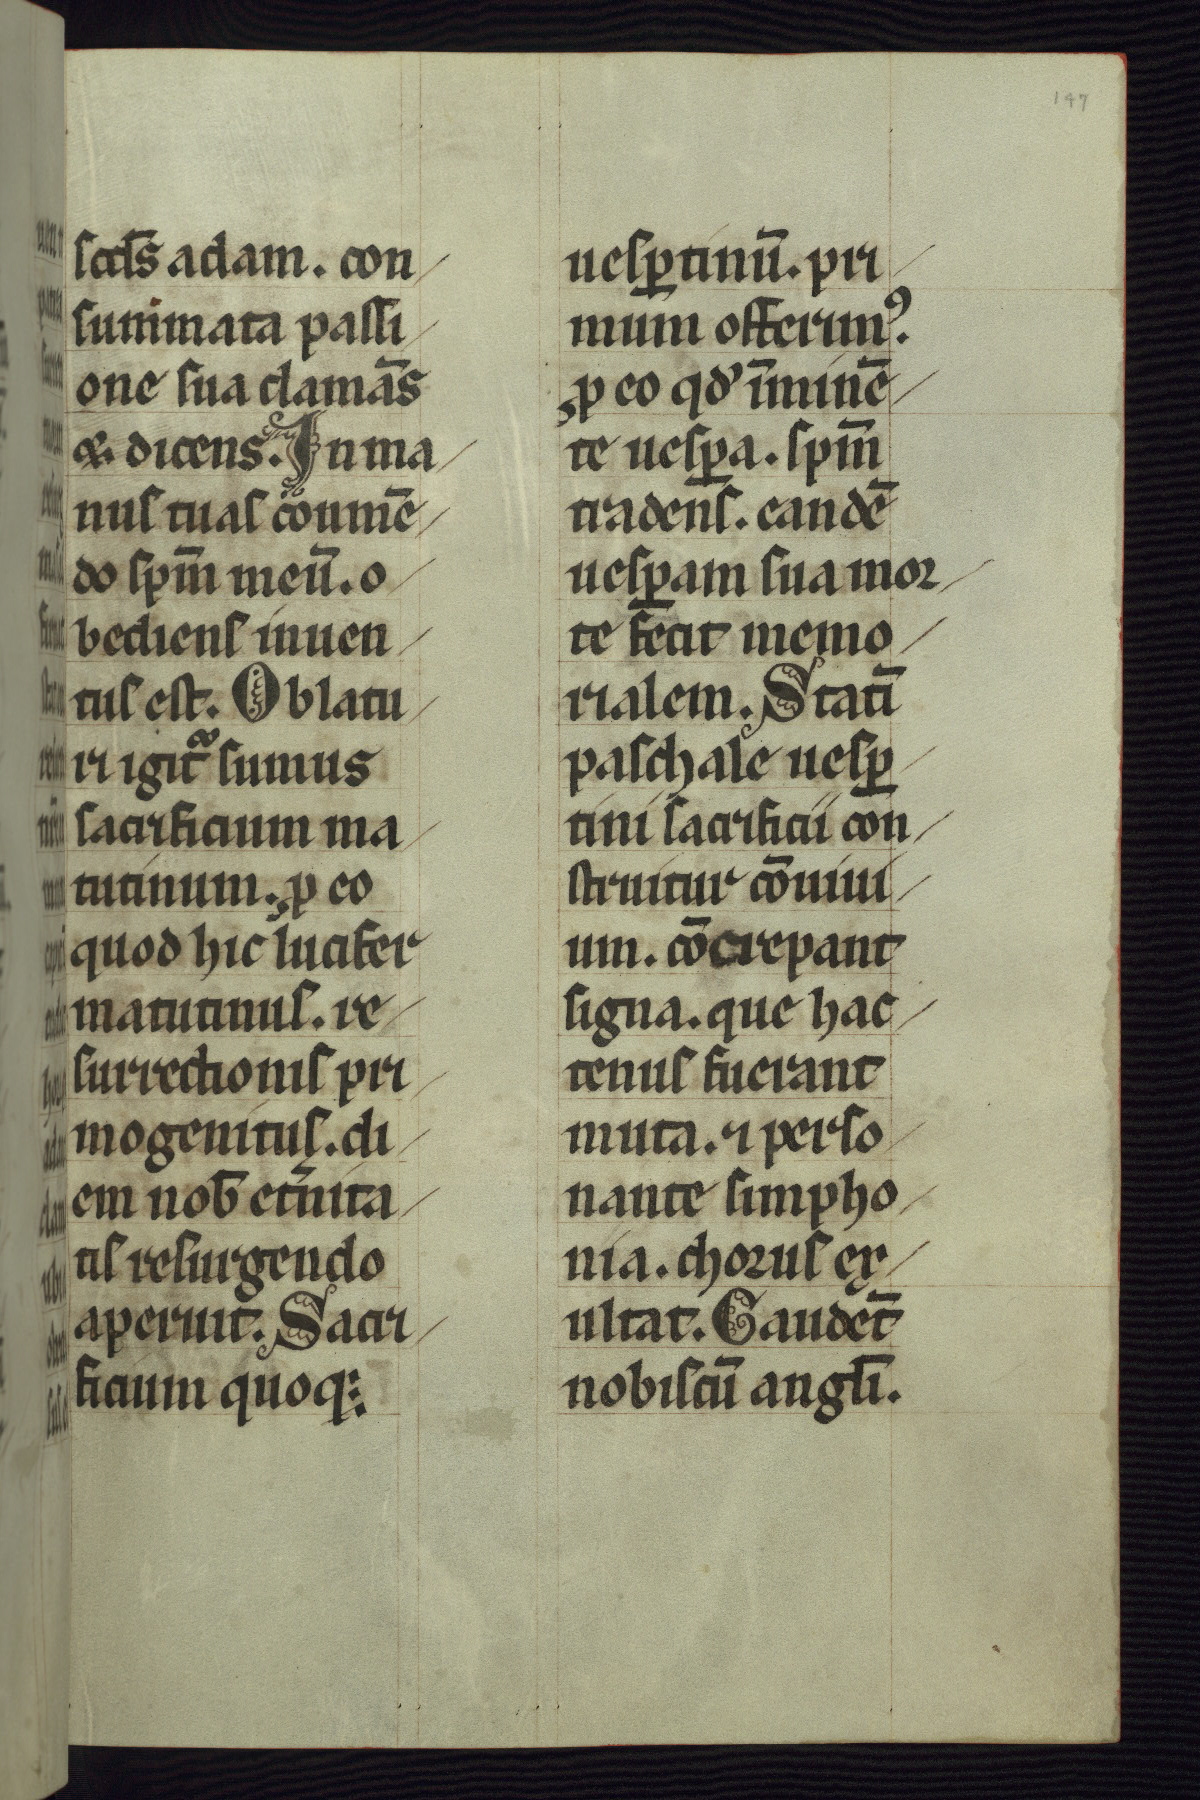 147
scd̄s adam. con
summata passi
one sua clamās
& dicens. In ma
nus tuas cōumē
do sp̄m meū. o
bediens inuen
tus est. Oblatu
ri igit᷑ sumus
sacrificium ma
tutinum. ꝓ eo
quod hic lucifer
matutinus. re
surrectionis pri
mogenitus. di
em nob̄ et̄nita
tis resurgendo
aperuit. Sacri
ficium quoq;
uesꝑtinū. pri
mum offerimꝰ.
ꝓ eo qd' īminē
te uesꝑa. sp̄m
tradens. eandē
uesꝑam sua mor
te fecit memo
rialem. Statī
paschale uesꝑ
tini sacrificii con
struitur cōuiui
um. cōcrepant
signa. que hac
tenus fuerant
muta. ⁊ perso
nante simpho
nia. chorus ex
ultat. Gaudēt
nobiscū angl̄i.